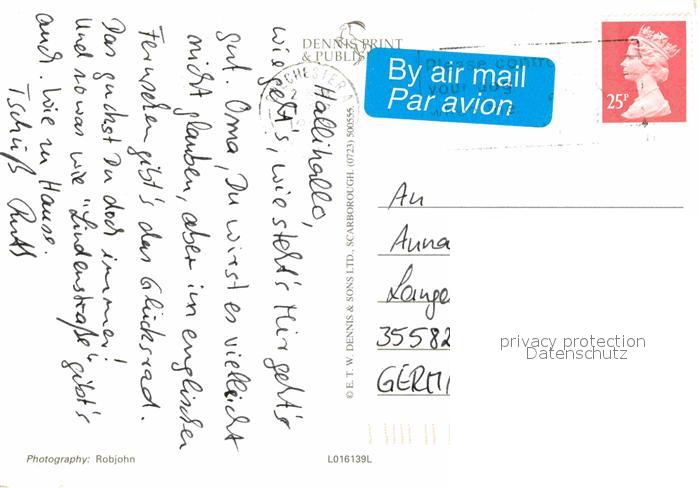 Hallihallo,
wie geht's, wie steht's? Mir geht's
gut. Oma, Du wirst es vielleicht
nicht glauben, aber im englischen
Fernsehen gibt's das Glücksrad.
Das guckst Du doch immer!
Und sowas wie "Lindenstraße" gibt's
auch. Wie zu Hause.
Tschüß Ruth
DENNIS PRINT
& PUBLIS
CHESTER
© E. T. W. DENNIS & SONS LTD., SCARBOROUGH. (0723) 500555.
By air mail
Par avion
please contr
your dog
25P
An
Anna
Lange
35582
GERM
privacy protection
Datenschutz
Photography: Robjohn
L016139L